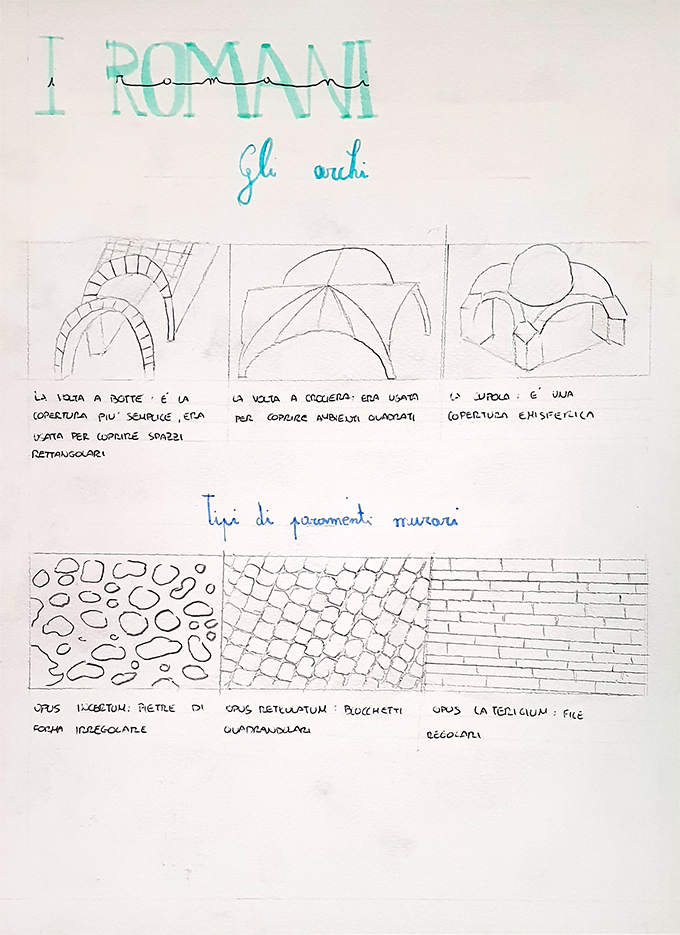 I ROMANI
i romani
Gli archi
LA VOLTA A BOTTE: É LA
COPERTURA PIU' SEMPLICE, ERA
USATA PER COPRIRE SPAZZI
RETTANGOLARI
LA VOLTA A CROCIERA: ERA USATA
PER COPRIRE AMBIENTI QUADRATI
LA CUPOLA: E' UNA
COPERTURA EMISFERICA
Tipi di paramenti murari
OPUS INCERTUM: PIETRE DI
FORMA IRREGOLARE
OPUS RETICULATUM: BLOCCHETTI
QUADRANGOLARI
OPUS LATERICIUM: FILE
REGOLARI